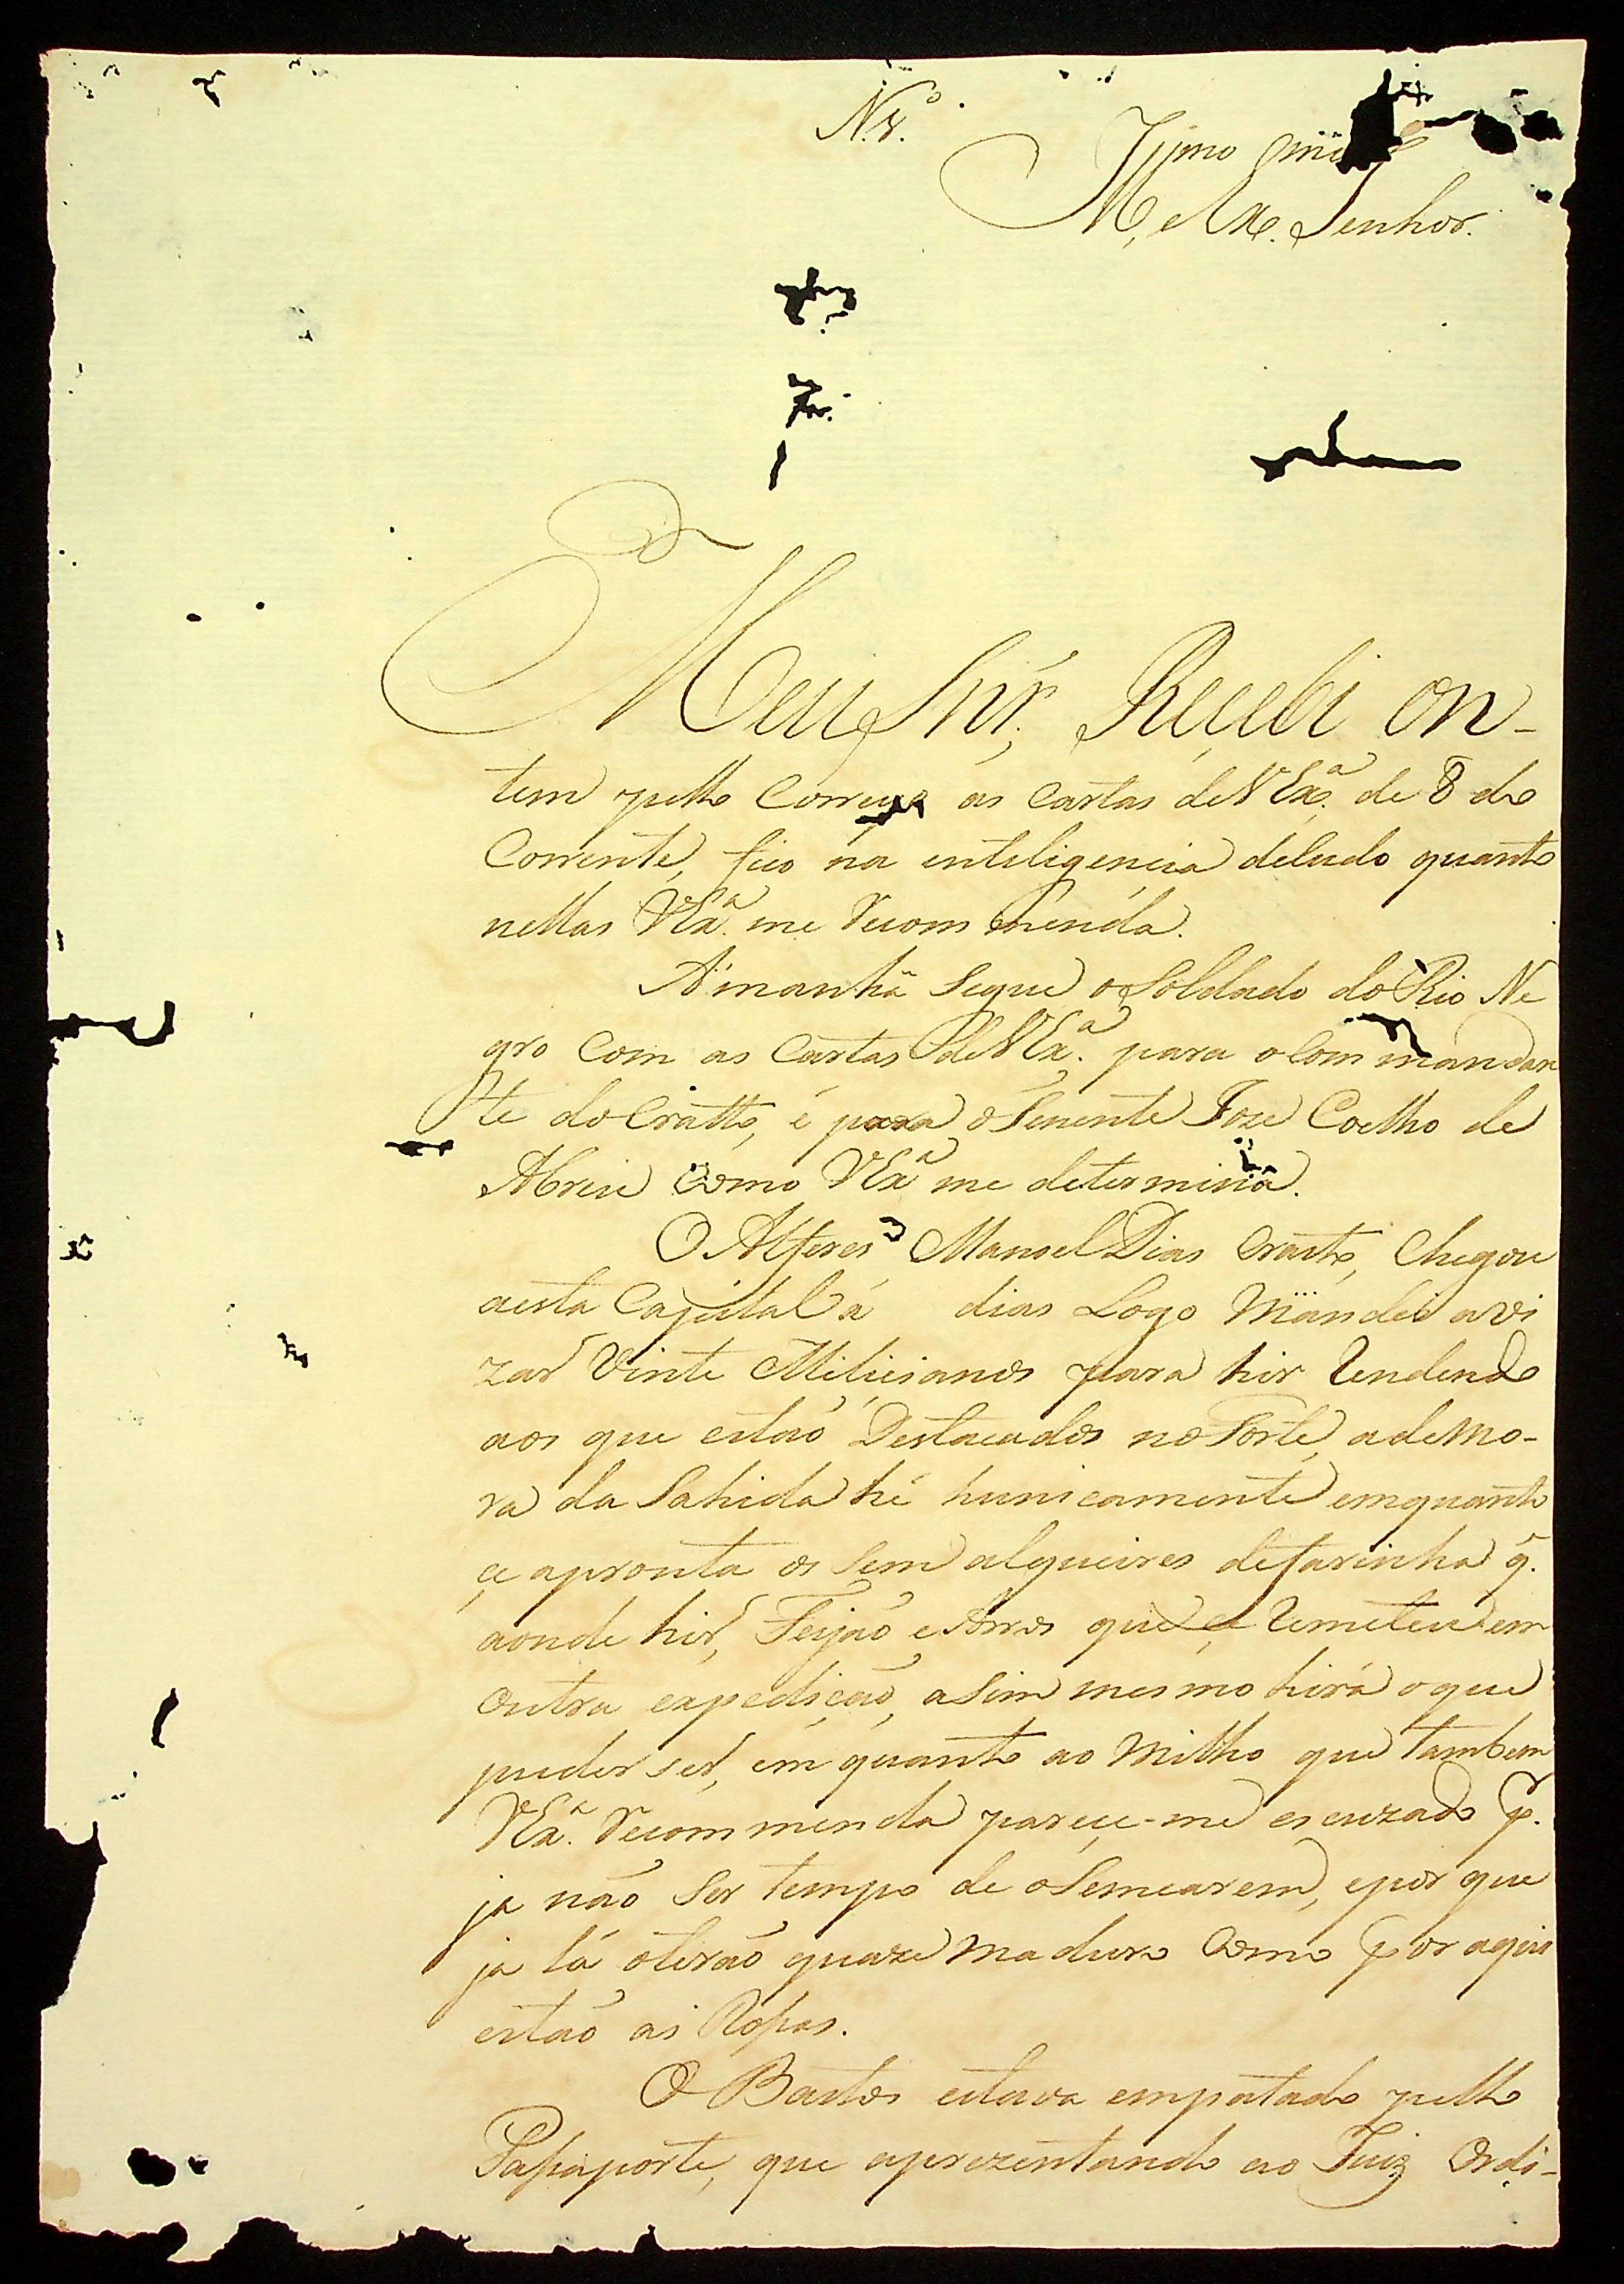 N.8.º
Illmo
M. e Ex. Senhor.
Meu Snr. Recebi on-
tem pello Correyo as Cartas de VEx.ª de 8 do
Corrente, fico na inteligencia detudo quanto
nellas VEx.ª me recommenda.
Amanhã Segue o Soldado do Rio Ne
gro Com as Cartas de VEx.ª para o Commandan
te do Cratto, é para o Tenente Joze Coelho de
Abreu Como VEx.ª me determina.
O Alferes Manoel Dias Crasto, Chegou
aesta Capital á dias Logo Mandei avi
zar Vinte Milicianos para hir rendendo
aos que estaõ Destacados no Forte, ademo-
ra da Sahida hé hunicamente emquanto
çe apronta os Sem alqueires defarinha q̃.
aonde hir, Feijaõ e Arros que çe remeteu em
Outra expediçaõ, aSim mesmo hirá oque
puder ser, em quanto ao Milho que tambem
VEx.ª recommenda pareçe-me escuzado p.r
ja naõ Ser tempo de oSemearem, epor que
ja lá oteraõ quaze maduro Como por aqui
estaõ as Rossas.
O Bastos estava empatado pello
Passaporte, que aprezentando ao Juiz Ordi-